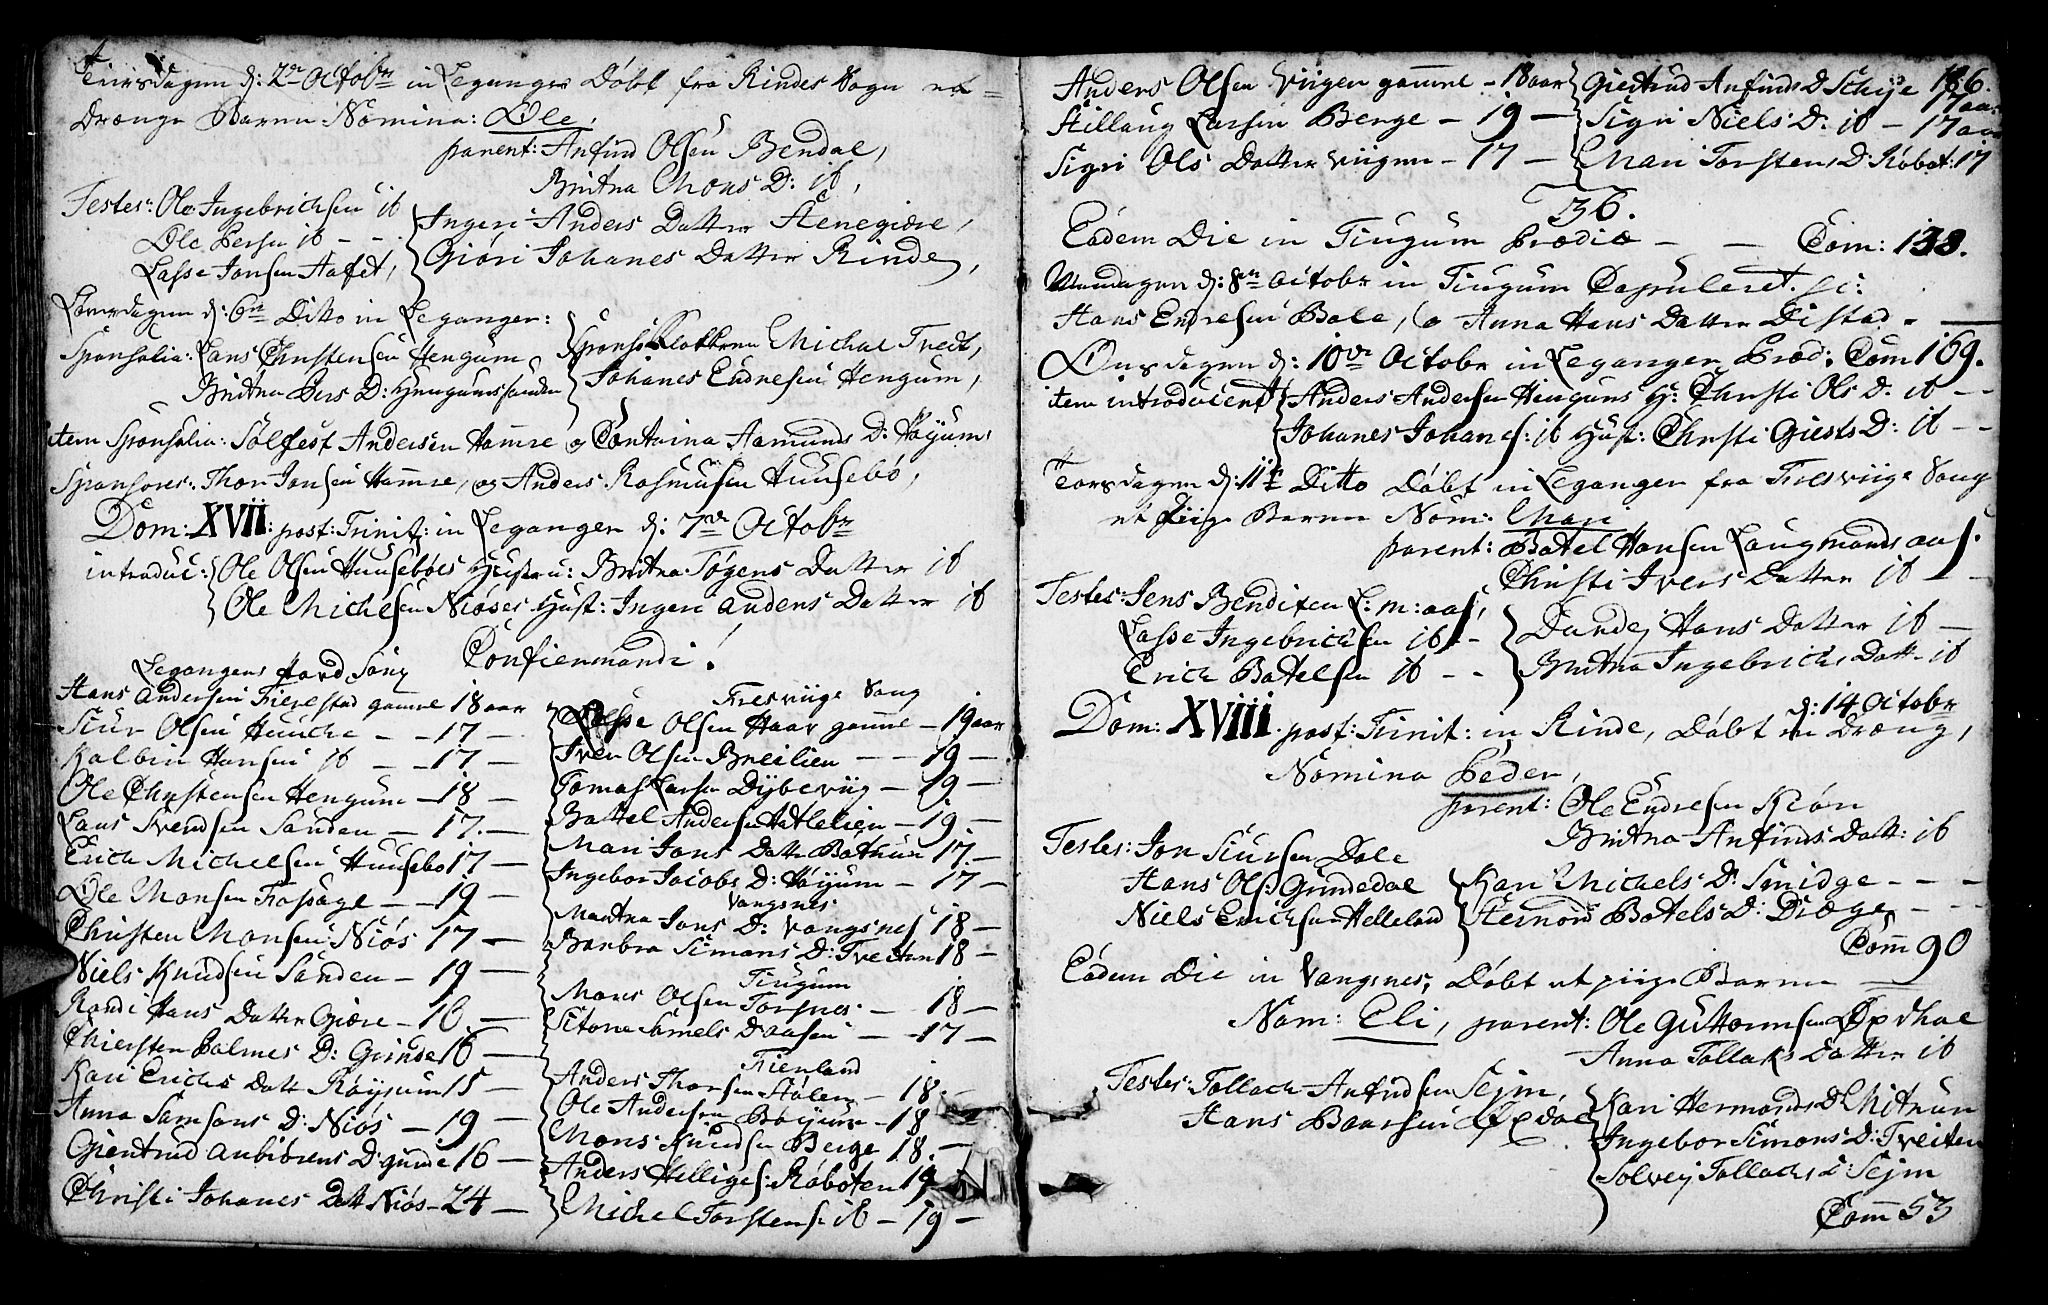 Tiirsdagen d: 2den Octobr in Leganger Døbt fra Rindes Sogn et
Drænge Barn Nomina: Ole,
parent: Anfind Olsen Bendal,
Britha Mons D: ib,
Testes: Ole Ingebrichsen ib
Ole Persen ib - -
Lasse Jonsen Aafet,
Ingeri Anders Datter Stenegiære,
Giøri Johanes Datter Rinde,
Løverdagen d: 6te Ditto in Leganger:
Sponsalia: Lars Christensen Hengum
Britha Pers D: Hengumssanden
Spons: Klokkeren Michal Tvedt,
Johanes Endresen Hengum,
item Sponsalia: Sølfest Andersen Hamre og Cathrina Aamunds D: Høyum,
Sponsores: Thor Jonsen Hamre, og Anders Rasmusen Huusebø,
Dom: XVII: post: Trinit: in Leganger d: 7de Octobr
introduc: Ole Olsen Huusebøes Hustru: Britha Tøgens Datter ib
Ole Michelsen Niøses Hust: Ingeri Anders Datter ib
Confirmandi!
Legangers Hovd Song
Hans Andersen Fierestad gamel 18 aar
Siur Olsen Hunche - - 17 -
Kolbin Hansen ib - - 17 -
Ole Christensen Hengum - 18 -
Lars Svendsen Sanden - 17. -
Erich Michelsen Huusebø 17 -
Ole Monsen Fossage - 19 -
Christen Monsen Niøs 17 -
Niels Knudsen Sanden - 19 -
Randi Hans Datter Giære - 16. -
Chiersten Palmes D: Grinde 16 -
Kari Erichs Datt Røysum 15 -
Anna Samsons D: Niøs - 19 -
Giertrud Anbiørens D: Grinde 16 -
Christi Johanes Datt Niøs - 24 -
Fresviige Song
Lasse Olsen Haar gamel - 19 aar
Iver Olsen Breilien - - 19 -
Tomas Larsen Dybeviig - 19 -
Battel Andersen Hatlelien - 19. -
Mari Jons Datter Bothun 17. -
Ingebor Jacobs D: Høyum - 17 -
Vangsnes
Martha Jons D: Vangsnes 18 -
Barbra Simons D: Tveiten 18 -
Tiugum
Mons Olsen Torsnes - 18 -
Sitona Samels D: Aasen - 17 -
Fierland
Anders Thorsen Støler - 18. -
Ole Andersen Bøyum - 18
Mons Knudsen Berge 18. -
Anders Helliges: Røboten 19
Michel Torstens: ib - 19 -
186.
Anders Olsen Viigen gamel - 18 aar
Stillaug Larsen Berge - 19 -
Sigri Ols Datter Viigen - 17 -
Giertrud Anfinds D Scheie 17 aar
Sigri Niels D: ib - 17 aar
Mari Torstens D: Røbot: 17
36.
Eodem Die in Tiugum Prædic - - Com: 138.
Mandagen d: 8de Octobr in Tiugum Copuleret. sc:
Hans Endresen Bale, & Anna Hans Datter Distad -
Onsdagen d: 10de Octobr in Leganger Præd: Com 169.
item introducient Anders Andersen Hengums H: Christi Ols D. ib - -
Johanes Johanes: ib Hust: Christi Giests D: ib - -
Torsdagen d: 11te Ditto Døbt in Leganger fra Fresviige Song
et Piige Barn Nom: Mari
parent: Batel Hansen Laugmands aas.
Christi Ivers Datter ib - -
Testes: Jens Bendixen L: m: aas,
Lasse Ingebrichsen ib - -
Erich Batelsen ib - -
Dundej Hans Datter ib -
Britha Ingebrichs Datt ib
Dom: XVIII. post: Trinit: in Rinde, d: 14 Octobr Døbt en Dræng,
Nomina Peder,
parent: Ole Endresen Kiøri
Britha Anfinds Datt: ib
Testes: Jon Siursen Dale
Hans Ols: Grindedal
Niels Erichsen Helleland
Kari Michels D: Smidge - - -
Steinør Batels D: Dræge - -
Com 90
Eodem Die in Vangsnes, Døbt et piige Barn -
Nom: Eli, parent: Ole Guttormsen Opdhal
Anna Tollaks Datter ib
Testes: Tollach Anfindsen Sejm,
Hans Baarsen Opdal
Kari Hermonds D: Mithun
Ingebor Simons D: Tveiten
Solvej Tollachs D: Sejm
Com 53